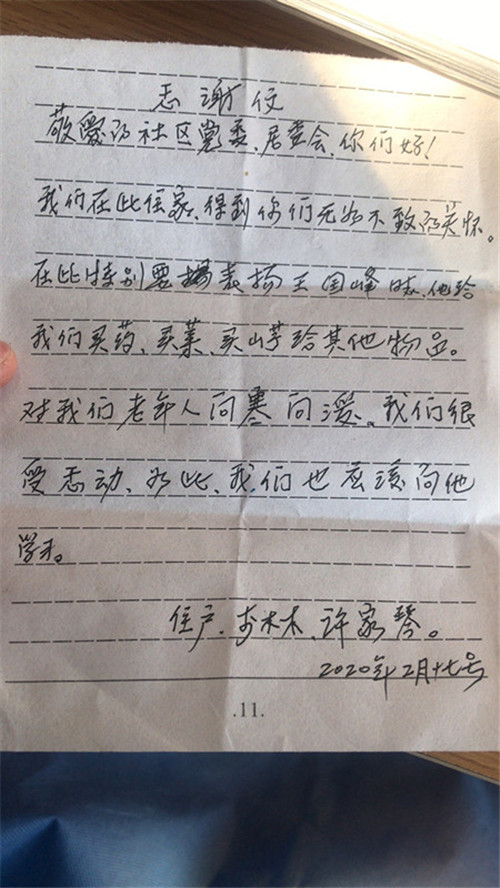 志谢信
敬爱的社区党委、居委会、你们好！
我们在此住家、得到你们无微不致的关怀。
在此特别要表扬王国峰 他给
我们买药、买菜、买 给其他物品。
对我们老年人问寒问暖、我们很
受志动、为此、我们也应该向他
学习。
住户、李木林、许家琴。
2020年2月十七号
.11.